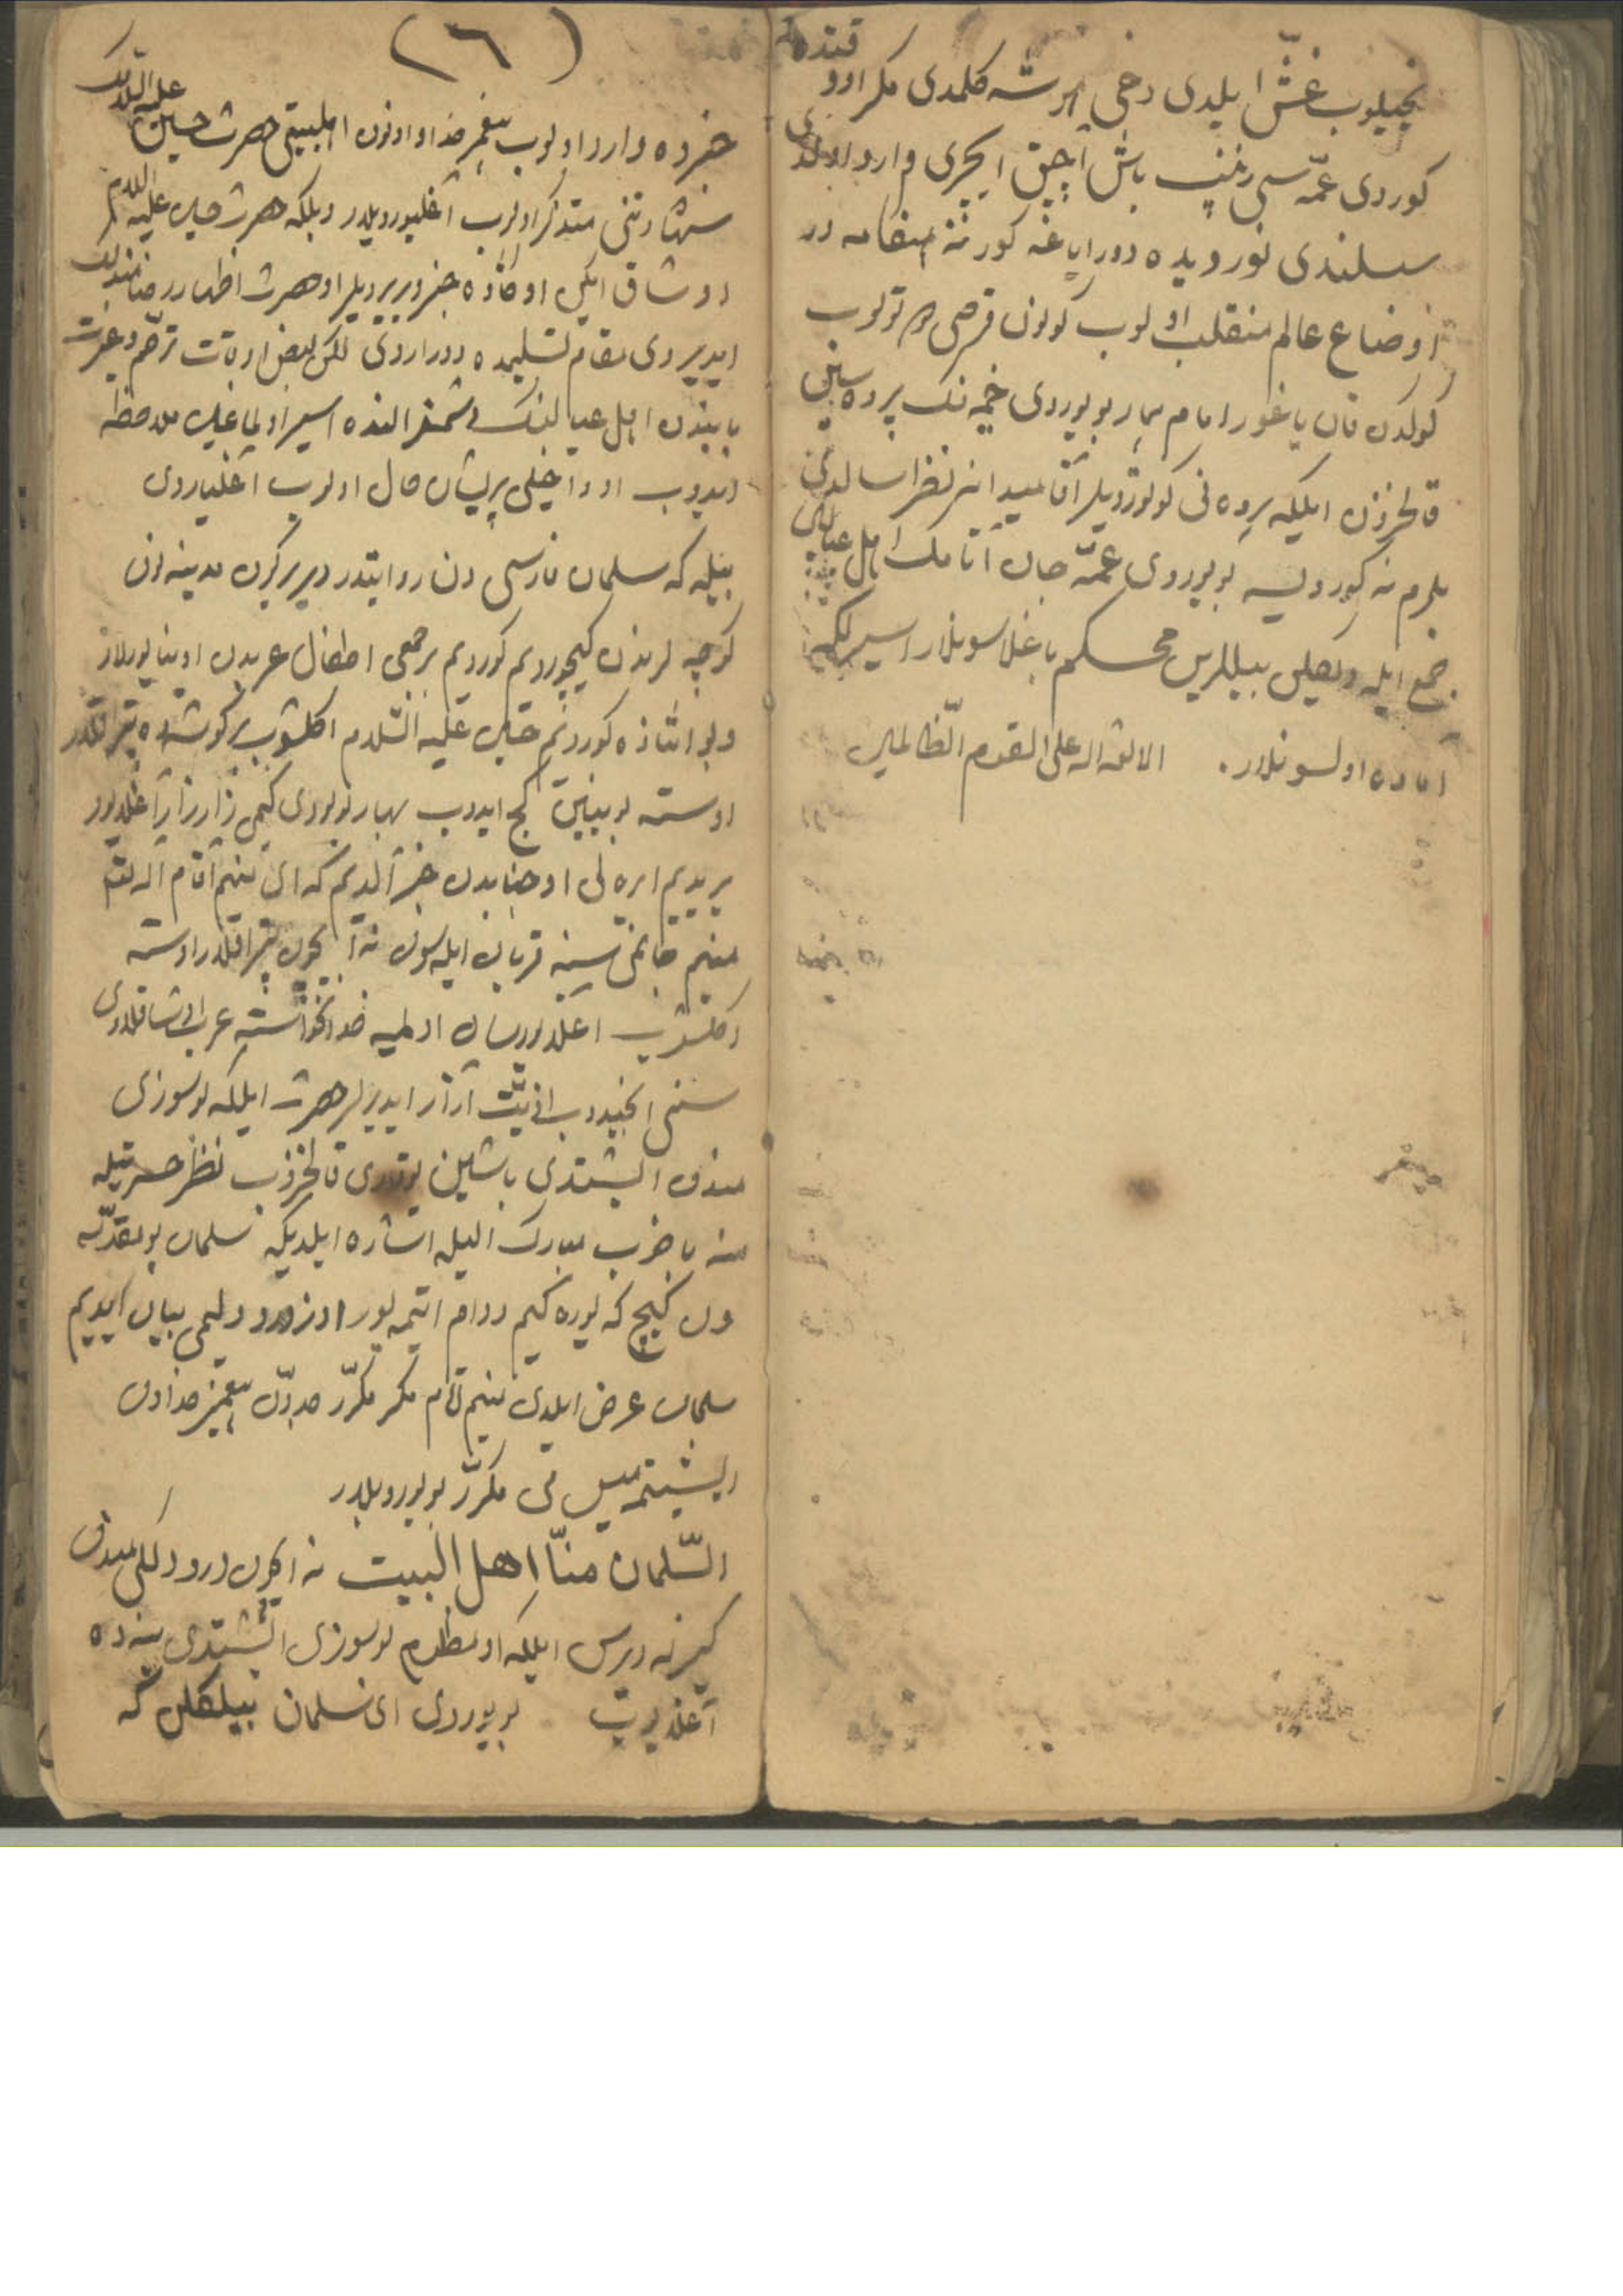 قنده
نجیلوب غشّ ایلدی دخی هوشه کلمدی مکر اوو
کوردی عمّه سی زینب باش آچیق ایچری وارد اولدی
سسلندی نور دیده دور ایاغه کور نه هنکامه در
اوضاع عالم منقلب اولوب کونون قرصی توتولوب
کوکدن قان یاغور امام بیمار بویوردی خیمه نک پرده سین
قالخزن ایلکه پرده نی کوتوردیلر آقا میدانه نظر سالدی
بلرم نه کوردیسه بویوردی عمّه جان آتامک اهل عیالی
جمع ایله وبیللرین محکم باغلاسونلار اسیرلکه
آماده اولسونلار. الا لعنة الله علی القوم الظّالمین
(٦)
خبرده وارد اولوب پیغمبر خدا و اونون اهلبیتی حضرت حسین علیه السّلامک
شهادتنی متذکر اولوب آغلیوردیلر وبلکه حضرت حسین علیه السلام
اوشاق ایکن اوقاده خبر ویریردیلر او حضرت اظهار رضامندلک
ایدیردی مقام تسلیمده دوراردی لکن بعض اوقات ترحّم وغیرت
بابیندن اهل عیالینک دشمنلر النده اسیر اولماغین ملاحظه
ایدوب اودا خیلی پریشان حال اولوب آغلیاردی
بیله که سلمان فارسی دن روایتدر دیر برکون مدینه نون
کوچه لریندن کیچوردیم کوردیم برجمعی اطفال عربدن اوینایورلار
وبو اثناده کوردیم حسین علیه السّلام اکلشوب برکوشه ده تپراقلار
اوسته بوینین کج ایدوب بهار بولودی کیمی زار زار آغلیور
یریدیم ایره لی او جنابدن خبر آلدیم که ای منیم آقام الله
منیم جانمی سینه قربان ایله سون نه ایچون تپراقلار اوسته
اکلشوب آغلیورسان اولمیه خدانخواسته عرب اوشاقلاری
سنی انجیدوب اذیّت آزار ایدیرلر حضرت ایلکه بو سوزی
مندن ایشتدی باشین یوقاری قالخزوب نظر حسرتیله
منه باخوب مبارک الیله اشاره ایلدیکه سلمان بو مقدّمه
دن کیچ که یوره کیم دوام ایتمیور اوز درد دلیمی بیان ایدیم
سلمان عرض ایلدی منیم آقام مکر مکرّر جدّون پیغمبر خدادن
ایشیتمیمیسن قی مکرّر بویوردیلر
السّلمان منّا اهل البیت نه ایچون درد دلکی مندن
کیزله دیرسن ایلکه او مظلوم بو سوزی ایشتدی ینه ده
آغلدیوب بویوردی ای سلمان بیلکلن که